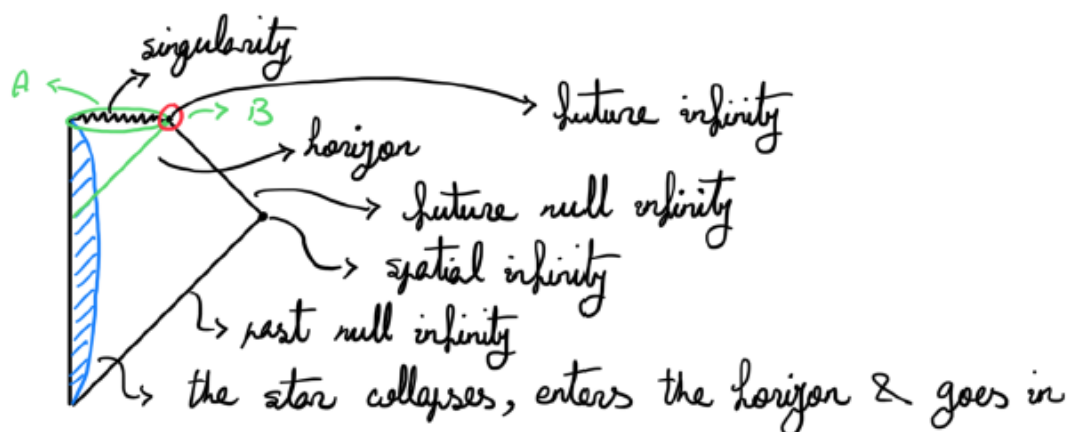 singularity
A
B
future infinity
horizon
future null infinity
spatial infinity
past null infinity
the star collapses, enters the horizon & goes in